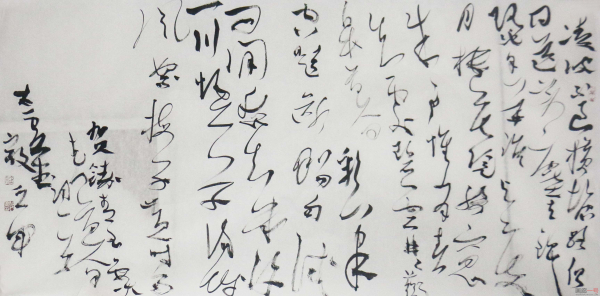 凌波不过横塘路但
目送芳尘去锦
瑟年华谁与度
月楼花院绮窗
朱户惟有春
知处碧云冉冉蘅
皋暮彩笔
空题断肠句试
问闲愁知几许
一川烟草满城
风絮梅子黄时雨
贺铸青玉案